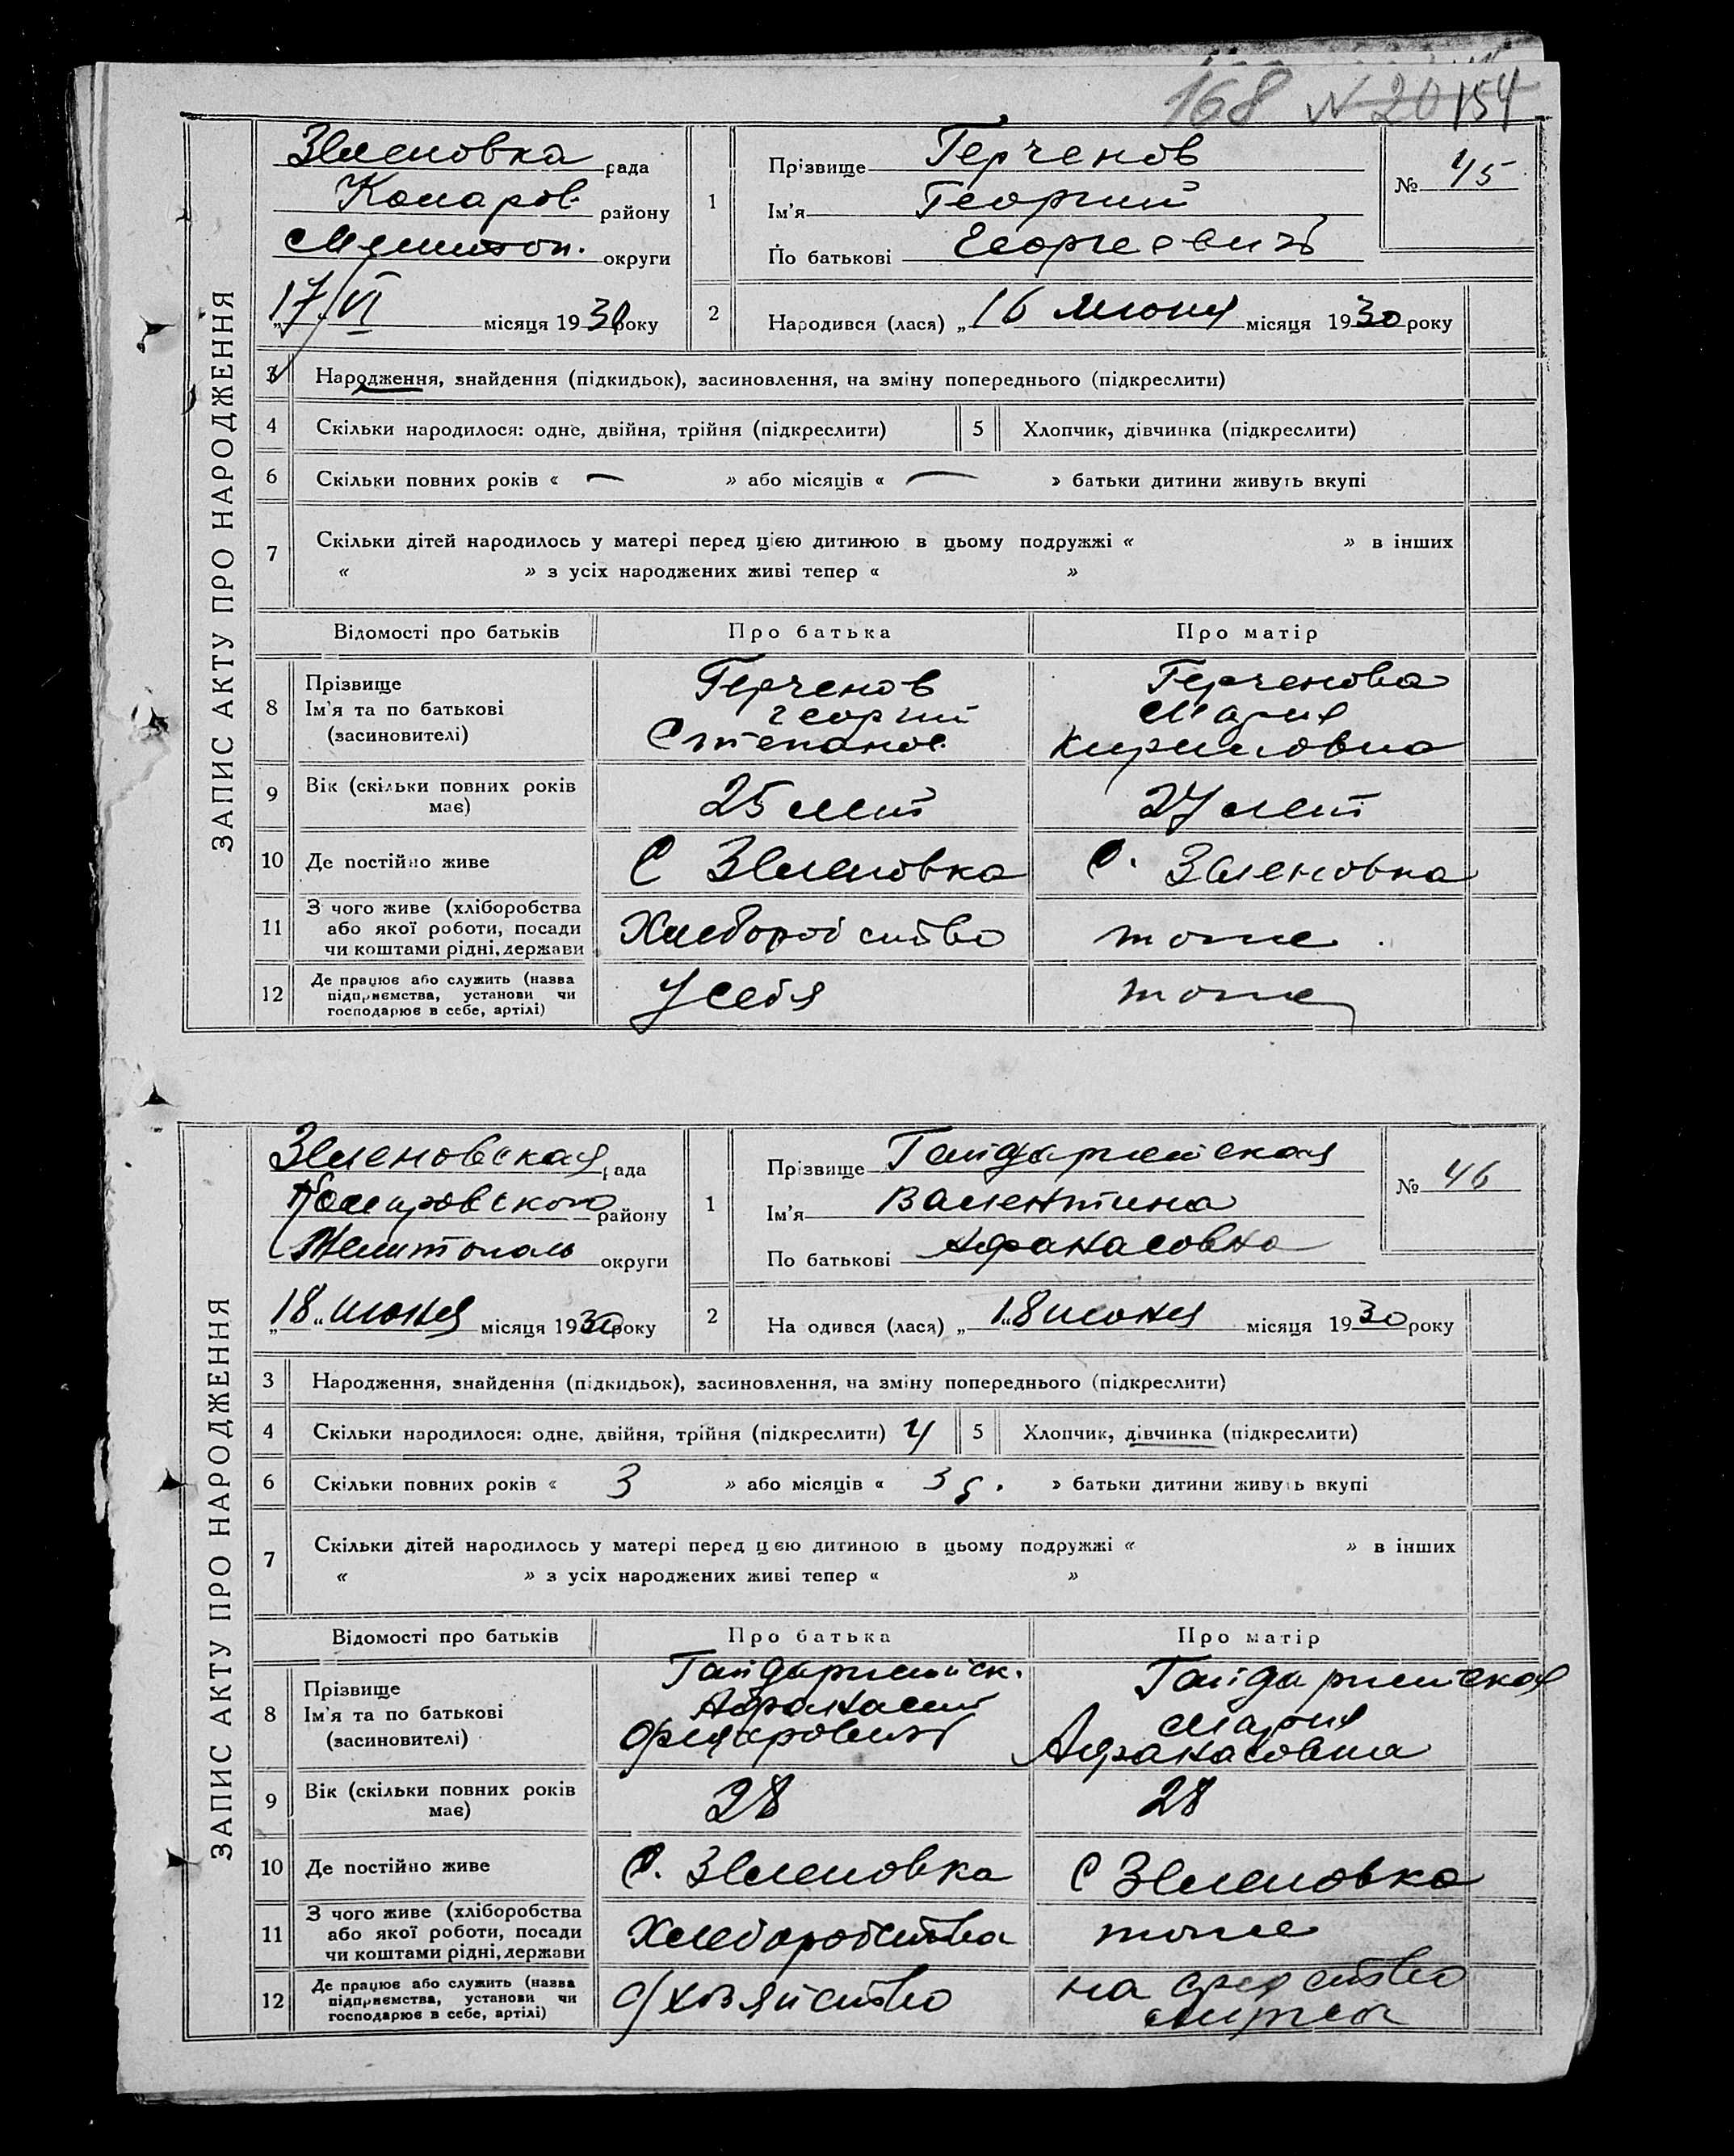 168 N 20 154
ЗАПИС АКТУ ПРО НАРОДЖЕННЯ
Зеленовка рада
Комаров. району
Мелитоп. округи
„17" VI місяця 1930 року
1
Прізвище Герченов
Ім'я Георгий
По батькові Георгиевич
№ 45
2 Народився (лася) „16 июня місяця 1930 року
3 Народження, знайдення (підкидьок), засиновлення, на зміну попереднього (підкреслити)
4 Скільки народилося: одне, двійня, трійня (підкреслити) 5 Хлопчик, дівчинка (підкреслити)
6 Скільки повних років « — » або місяців « — » батьки дитини живуть вкупі
7 Скільки дітей народилось у матері перед цією дитиною в цьому подружжі « » в інших
« » з усіх народжених живі тепер « »
Відомості про батьків Про батька Про матір
8 Прізвище
Ім'я та по батькові
(засиновителі)
Герченов
Георгий
Степанов.
Герченова
Мария
Кириловна
9 Вік (скільки повних років
має)
25 лет
27 лет
10 Де постійно живе С Зеленовка С. Зеленовка
11 З чого живе (хліборобства
або якої роботи, посади
чи коштами рідні, держави
Хлеборобство
тоже
12 Де працює або служить (назва
підприємства, установи чи
господарює в себе, артілі)
У себя
тоже
ЗАПИС АКТУ ПРО НАРОДЖЕННЯ
Зеленовская рада
Комаровского району
Мелитополь округи
„18" июня місяця 1930 року
1
Прізвище
Ім'я Валентина
По батькові Афанасовна
№ 46
2 На одився (лася) „18 июня місяця 1930 року
3 Народження, знайдення (підкидьок), засиновлення, на зміну попереднього (підкреслити)
4 Скільки народилося: одне, двійня, трійня (підкреслити) 5 Хлопчик, дівчинка (підкреслити)
6 Скільки повних років « 3 » або місяців « » батьки дитини живуть вкупі
7 Скільки дітей народилось у матері перед цією дитиною в цьому подружжі « » в інших
« » з усіх народжених живі тепер « »
Відомості про батьків Про батька Про матір
8 Прізвище
Ім'я та по батькові
(засиновителі)
Афанасий
Мария
Афанасовна
9 Вік (скільки повних років
має)
28
28
10 Де постійно живе С. Зеленовка С Зеленовка
11 З чого живе (хліборобства
або якої роботи, посади
чи коштами рідні, держави
Хлеборобства
тоже
12 Де працює або служить (назва
підприємства, установи чи
господарює в себе, артілі)
с/хозяйство
на средство
мужа